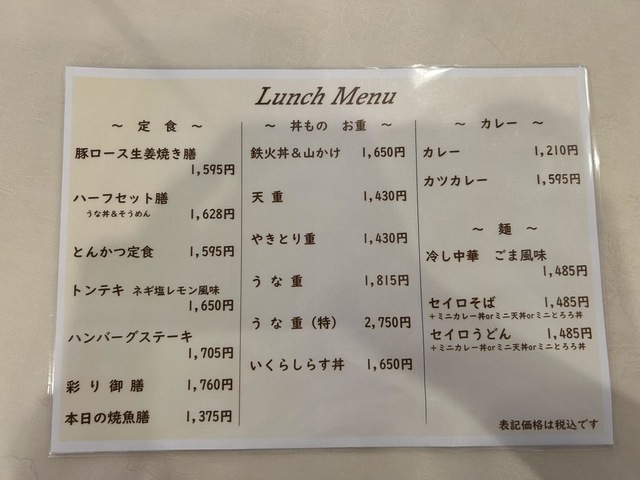 Lunch Menu
～ 定 食 ～
豚ロース生姜焼き膳
1,595円
ハーフセット膳
うな丼＆そうめん 1,628円
とんかつ定食 1,595円
トンテキ ネギ塩レモン風味
1,650円
ハンバーグステーキ
1,705円
彩り御膳 1,760円
本日の焼魚膳 1,375円
～ 丼もの お重 ～
鉄火丼＆山かけ 1,650円
天重 1,430円
やきとり重 1,430円
うな重 1,815円
うな重（特） 2,750円
いくらしらす丼 1,650円
～ カレー ～
カレー 1,210円
カツカレー 1,595円
～ 麺 ～
冷し中華 ごま風味
1,485円
セイロそば 1,485円
＋ミニカレー丼orミニ天丼orミニとろろ丼
セイロうどん 1,485円
＋ミニカレー丼orミニ天丼orミニとろろ丼
表記価格は税込です